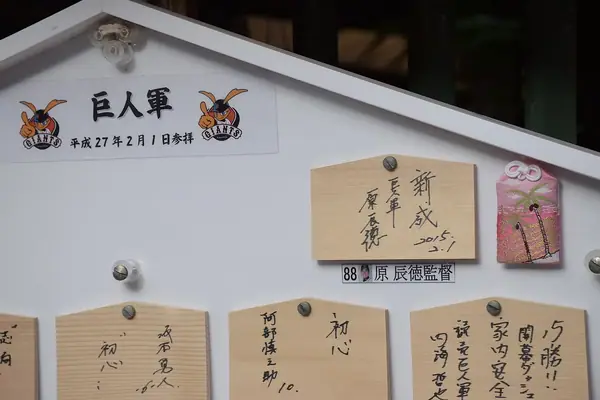 巨人軍
GIANTS
GIANTS
平成27年2月1日参拝
新成
巨人軍
原辰徳
2015.
2.1
88 原 辰徳監督
坂本勇人
初心
6
初心
阿部慎之助
10.
必勝!!
開幕ダッシュ
家内安全
読売巨人軍